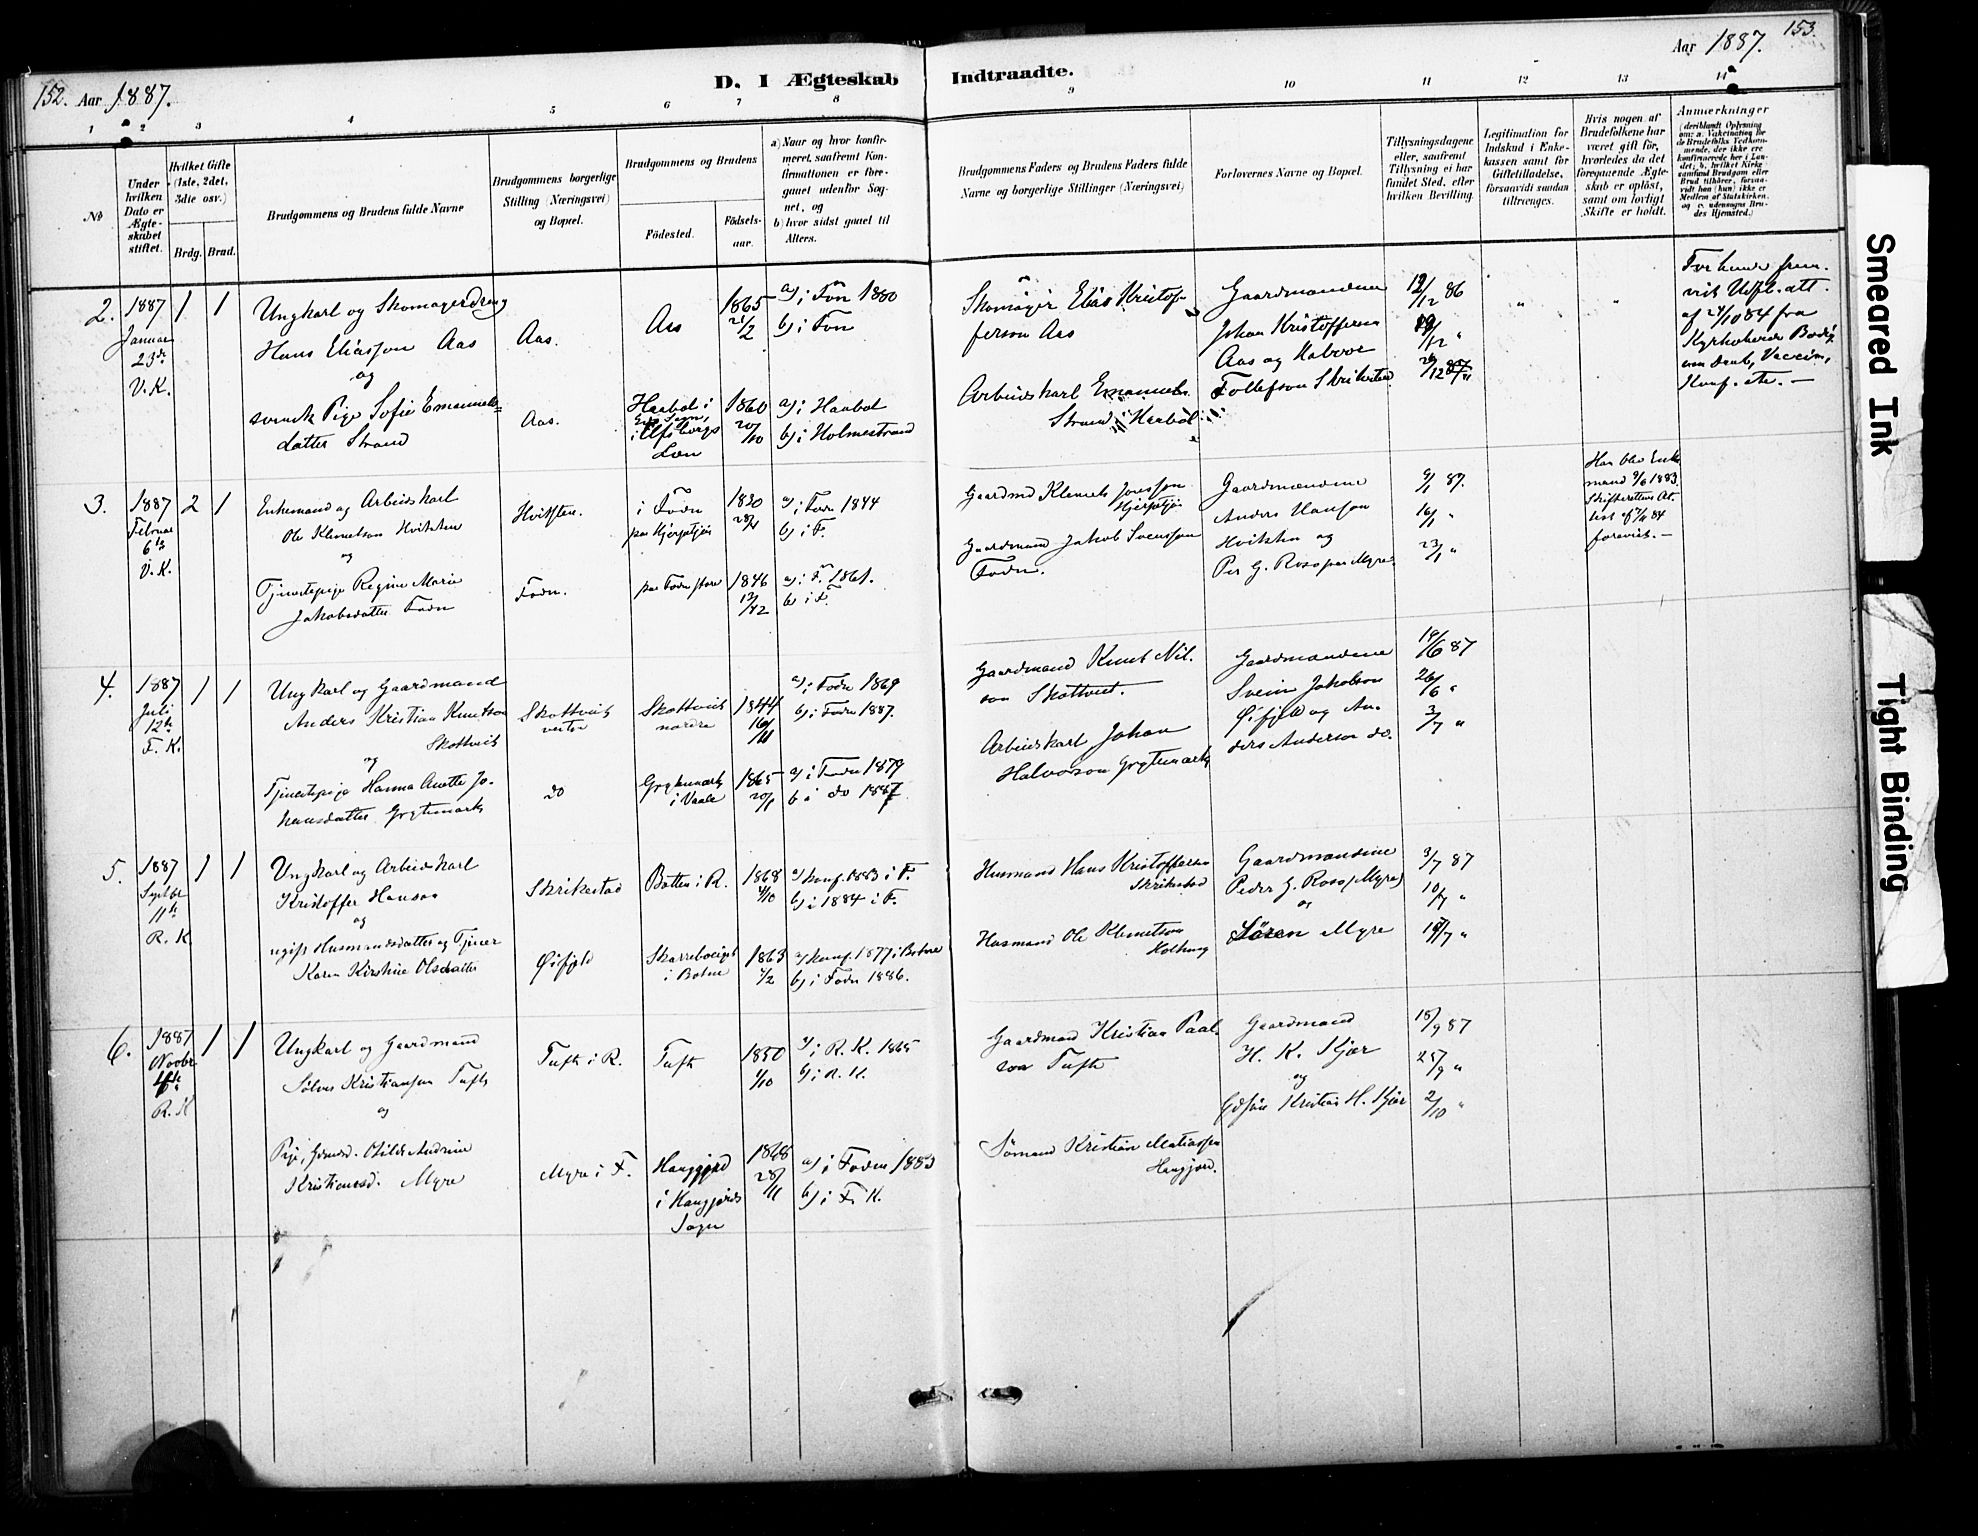 152. Aar 1887.
D. I Ægteskab
Indtraadte.
Aar 1887. 153.
1 2 3 4 5 6 7 8
9 10 11 12 13 14
No
Under hvilken Dato er Ægteskabet stiftet.
Hvilket Gifte (1ste, 2det, 3die osv.)
Brdg. Brud.
Brudgommens og Brudens fulde Navne
Brudgommens borgerlige Stilling (Næringsvei) og Bopæl.
Brudgommens og Brudens
Födested.
Födsels-aar.
a) Naar og hvor konfirmeret, saafremt Konfirmationen er foregaaet udenfor Sognet, og
b) hvor sidst gaaet til Alters.
Brudgommens Faders og Brudens Faders fulde Navne og borgerlige Stillinger (Næringsvei)
Forlovernes Navne og Bopæl.
Tillysningsdagene eller, saafremt Tillysning ei har fundet Sted, efter hvilken Bevilling.
Legitimation for Indskud i Enkekassen samt for Giftetilladelse, forsaavidt saadan tiltrænges.
Hvis nogen af Brudefolkene har været gift før, hvorledes da det foregaaende Ægteskab er opløst, samt om lovligt Skifte er holdt.
Anmærkninger
(deriblandt Oplysning om: a. Vakcination for de Brudefolks Vedkommende, der ikke ere konfirmerede her i Landet; b. hvilket Kirkesamfund Brudgom eller Brud tilhører, forsaavidt han (hun) ikke er Medlem af Statskirken, og c. udensogns Brudes Hjemsted.)
2. 1887 Januar 23de V. K.
1 1
Ungkarl og Skomagerdreng
Hans Eliasson Aas
og
svensk Pige Sofie Emanuels=
datter Strand
Aas.
Aas.
Aas
1865 21/2
a) i Fon 1880
b) i Fon
Haabol i
i Elfsborgs
Læn
1860 20/10
a) i Haabol
b) i Holmestrand
Skomager Elias Kristof-
ferson Aas
Arbeidskarl Emanuel
Strand i Haabol
Gaardmændene
Johan Kristofferson
Aas og Halvor
Tollefson Skrikestad
12/12 86
19/12 "
26/12 "
" "
For hende frem-
vist Udfl. att.
af 24/10 84 fra
Kyrkoherde
om Daab, Vaccin,
Konf. etc. —
3. 1887 Februar 6te V. K.
2 1
Enkemand og Arbeidskarl
Ole Klemetson Hvitsten
og
Tjenestepige Regine Marie
Jakobsdatter Fodn
Hvitsten.
Fodn.
i Fodn
paa Hjerpetjön
1830 28/4
a) i Fodn 1844
b) i F.
paa Fodn store
1846 13/12
a) i F. 1861.
b) i F.
Gaardmd Klemet Jonsson
Hjerpetjön
Gaardmand Jakob Svensson
Fodn.
Gaardmændene
Anders Hanson
Hvitsten og
Per G. Ross paa Myre
9/1 87.
16/1 "
23/1 "
Han blev Enke
mand 9/6 1883.
Skifterettens At-
test af 7/11 84
forevist. —
4. 1887 Juli 12te F. K.
1 1
Ungkarl og Gaardmand
Anders Kristian Knutson
Skottvit
og
Tjenestepige Hanna Anette Jo-
hansdatter Grytemark
Skottvit
vestre
do
Skottvit
nordre
1844 16/11
a) i Fodn 1869
b) i Fodn 1887.
Grytemark
i Vaale
1865 20/1
a) i Fodn 1879
b i do 1887
Gaardmand Knut Nil.
son Skottvit.
Arbeidskarl Johan
Halvorson Grytemark
Gaardmændene
Svein Jakobson
Øifjeld og An-
ders Anderson do.
19/6 87
26/6 "
3/7 "
5. 1887 Septbr 11te R. K.
1 1
Ungkarl og Arbeidskarl
Kristoffer Hanson
og
ugift Husmandsdatter og Tjener
Karen Kirstine Olsdatter
Skrikestad
Øifjeld
Botten i R.
1868 4/10
a) konf. 1883 i F.
b) i 1884 i F.
i Botne
1863 1/2
a) konf. 1877 i Botne
b) i Fodn 1886.
Husmand Hans Kristofferson
Skrikestad
Husmand Ole Klemetson
Gaardmændene
Peder G. Ross (Myre)
og
Søren Myre
3/7 87
10/7 "
17/7 "
6. 1887 Novbr R. K
1 1
Ungkarl og Gaardmand
Sølver Kristianson Tufte
og
Pige, Otilde Andrine
Kristiansd. Myre
Tufte i R.
Myre i F.
Tufte
1850 1/10
a) i R. K. 1865
b) i R. K.
Haugjord
i Haugjords
Sogn
1868 28/11
a) i Fodn 1883
b) i F. K.
Gaardmand Kristian Paal-
son Tufte
Sømand Kristian Matiasson
Haugjord.
Gaardmand
H. K. Kjær
og
Kristian H. Kjær
18/9 87
25/9 "
2/10 "
Smeared Ink
Tight Binding